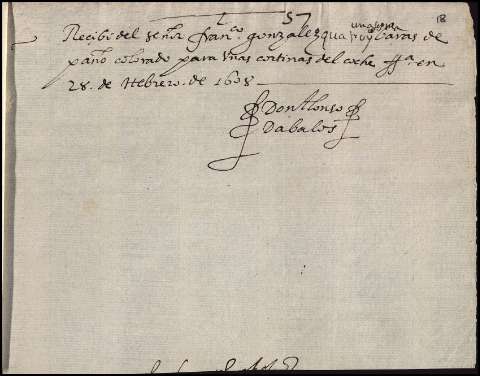 18
Recibi del señor Franco gonzalez quatro y baras de
paño colorado para unas cortinas del coche ffa en
28 de Hebrero de 1608
Don Alonso
Dabalos